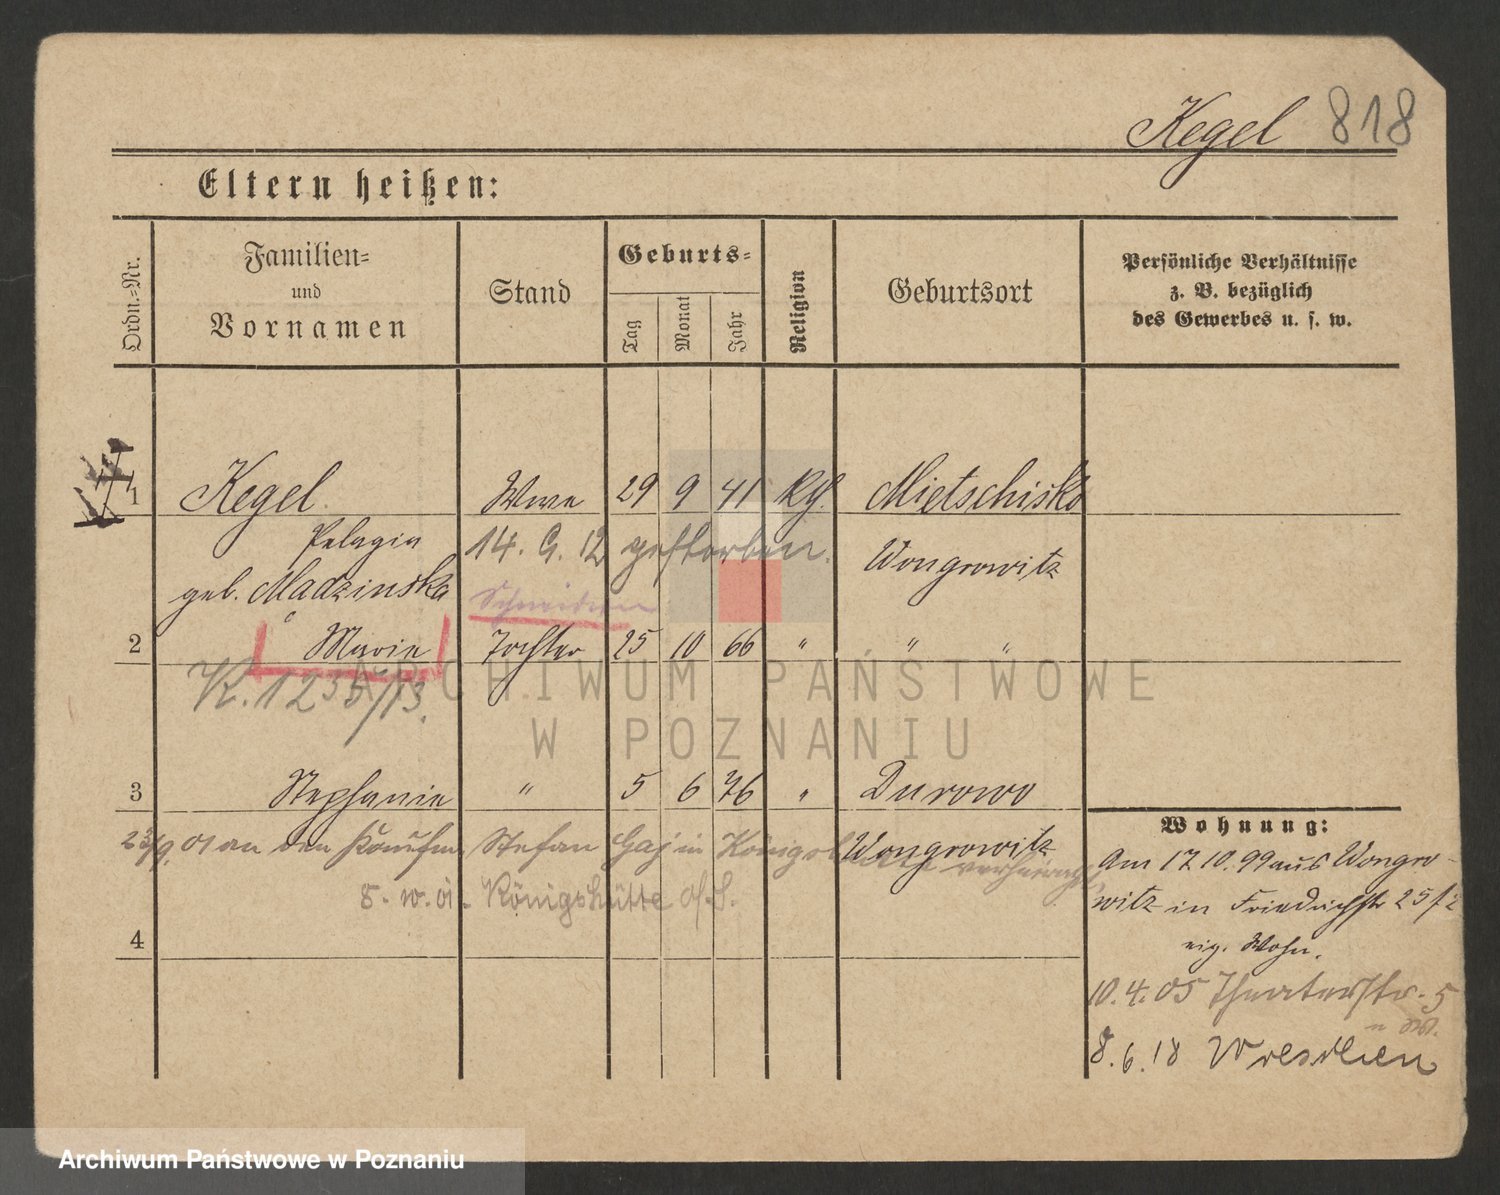 Kegel 818
Eltern heißen:
Ordn.-Nr.
Familien-
und
Vornamen
Stand
Geburts-
Tag
Monat
Jahr
Religion
Geburtsort
Persönliche Verhältnisse
z. B. bezüglich
des Gewerbes u. s. w.
1 Kegel Wwe 29 9 41 Mietschisko
Pelagia 14. 9. 12 gestorben. Wongrowitz
geb. Madzinska Schneiderin
2 Marie Tochter 25 10 66 " " "
K. 1235/13.
3 Stephanie " 5 6 76 " Durowo
Wongrowitz
23/9 01 an den Kaufm. Stefan Gaj in verheiratet
8. 10. 01. Königshütte o/S.
4
Wohnung:
Am 17.10.99 aus Wongro-
witz in Friedrichstr 25
eig. Wohn.
10.4.05 Theaterstr. 5
8.6.18 Wreschen
ARCHIWUM PAŃSTWOWE
W POZNANIU
Archiwum Państwowe w Poznaniu